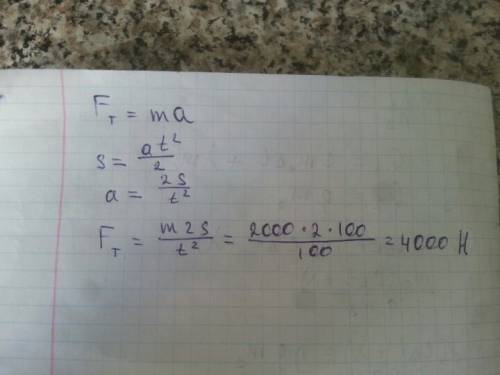 Fт = ma
s = at²/2
a = 2s/t²
Fт = m2s/t² = 2000·2·100/100 = 4000 Н